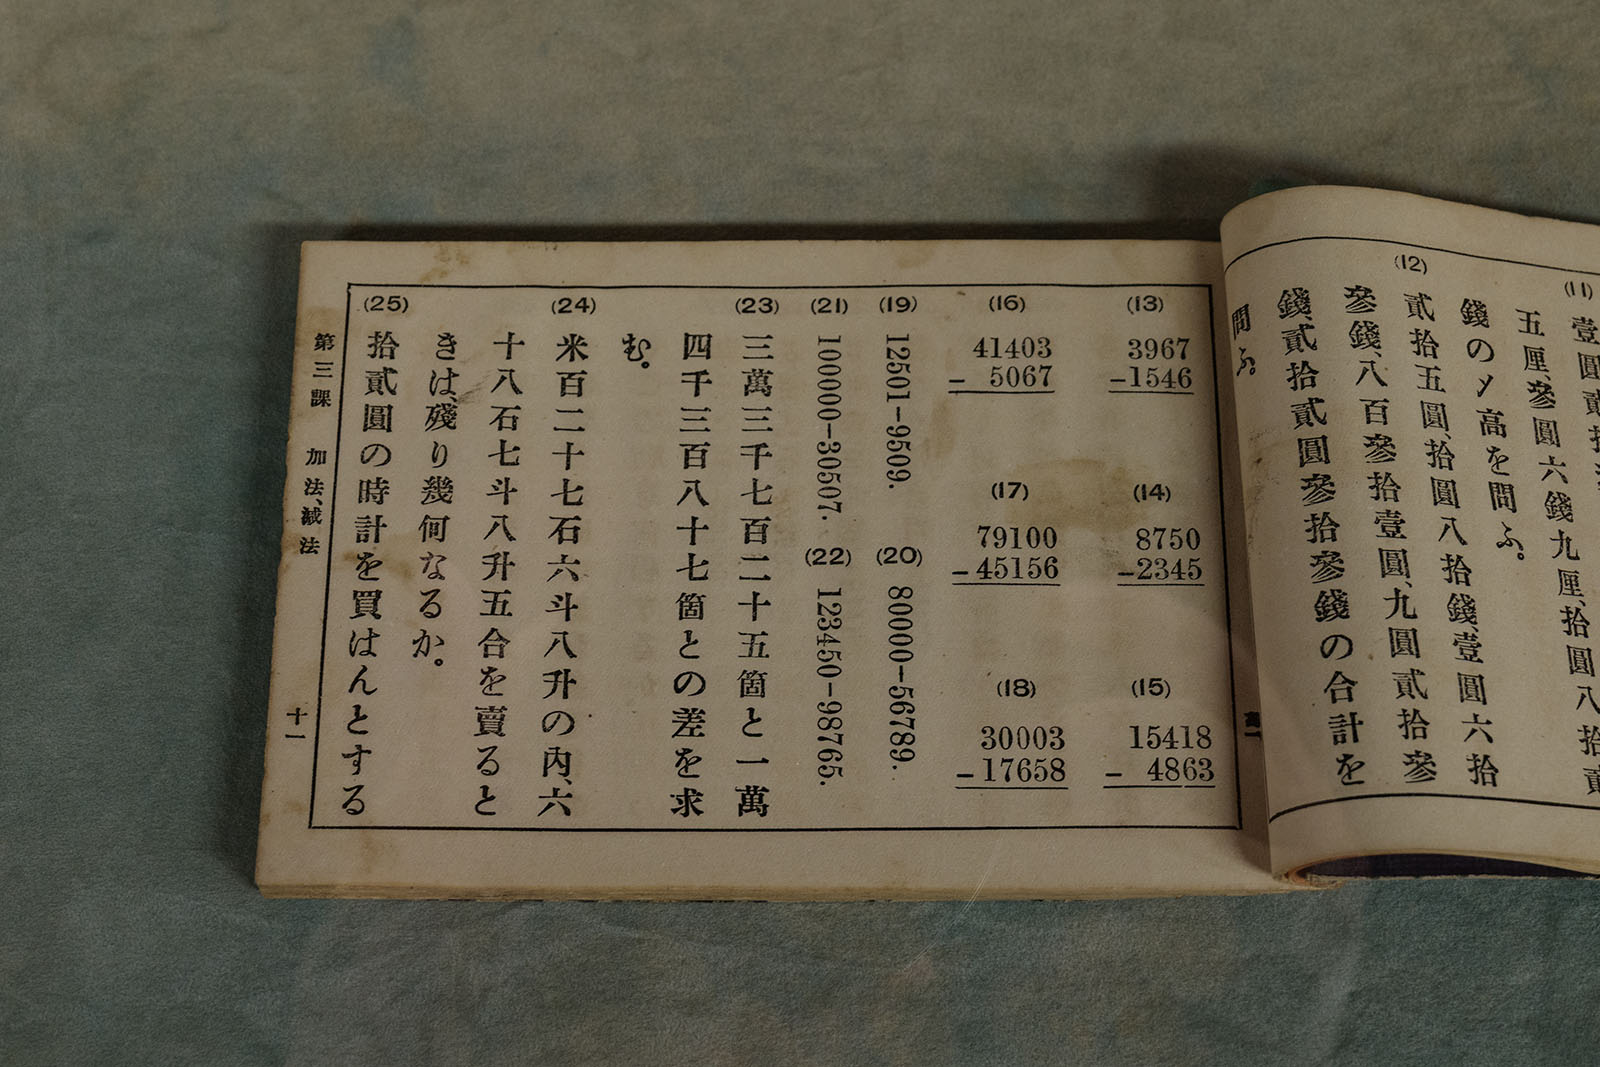 (11)
壹圓貳拾
五厘、參圓六錢九厘、拾圓八拾貳
錢の〆高を問ふ。
(12)
貳拾五圓、拾圓八拾錢、壹圓六拾
參錢、八百參拾壹圓、九圓貳拾參
錢、貳拾貳圓參拾參錢の合計を
問ふ。
(13)
3967
-1546
(14)
8750
-2345
(15)
15418
- 4863
(16)
41403
- 5067
(17)
79100
-45156
(18)
30003
-17658
(19) 12501-9509.
(20) 80000-56789.
(21) 100000-30507.
(22) 123450-98765.
(23)
三萬三千七百二十五箇と一萬
四千三百八十七箇との差を求
む。
(24)
米百二十七石六斗八升の內、六
十八石七斗八升五合を賣ると
きは、殘り幾何なるか。
(25)
拾貳圓の時計を買はんとする
第三課 加法、減法
十一